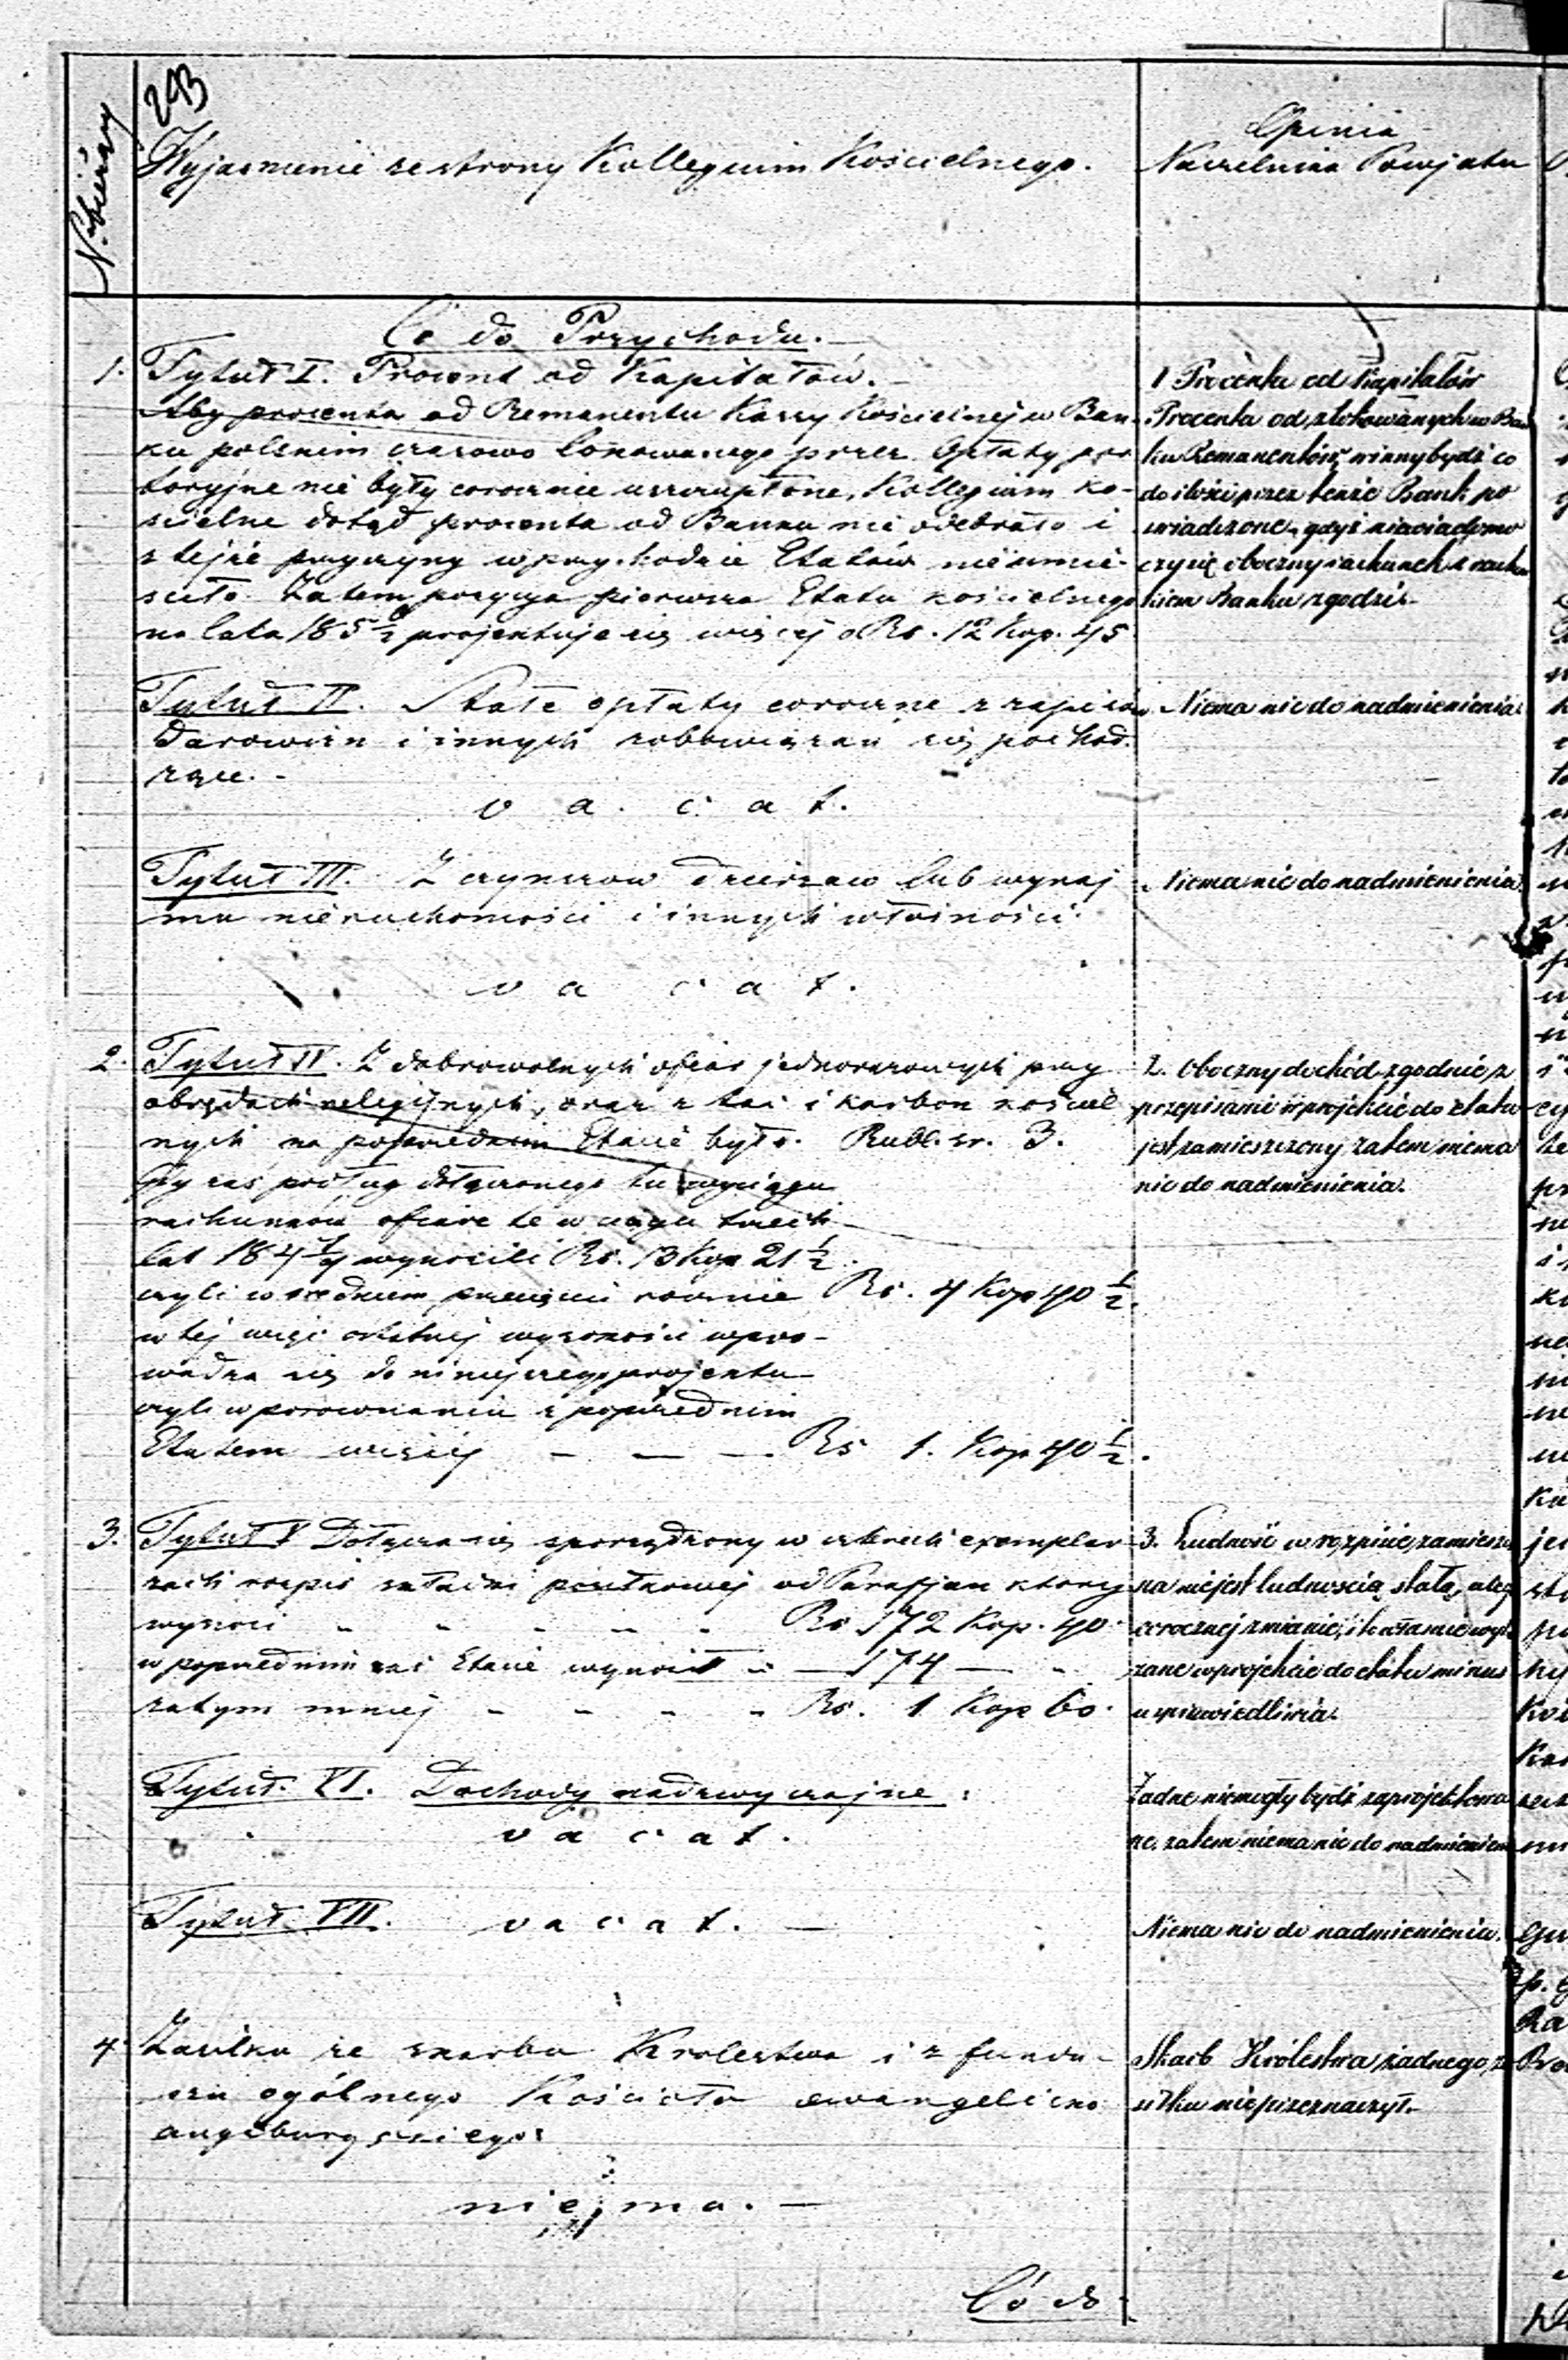 N. bieżący
293
Wyjasnienie ze strony Kollegium Kościelnego.
Opinia
Naczelnika Powjatu
Co do Przychodu.
1. Tytuł I. Procent od Kapitałów.
Aby procenta od Remanentu Kassy Kościelnej w Ban-
ku polskim czasowo lokowanego przez Opłaty
nie były corocznie uszczuplone, Kollegium Ko-
scielne dotąd procenta od Banku nie odebrało i
z tejże przyczyny w przychodzie Etatów nie umie-
sciło. Zatem pozycya pierwsza Etatu kościelnego
na lata 185 projektuje się więcej o Rs. 12 Kop. 45
1 Procenta od Kapitałów
Procenta od ulokowanych w Ban
ku Remanentów, winny bydź co
do ilości przez tenże Bank po
swiadczone, gdyż niewiadomo
czy się oboczny rachunek z rachun
kiem Banku zgodzi.
Tytuł II. Stałe opłaty coroczne z zapisów
Darowizn i innych zobowiązań się pochod-
zące. -
v a c a t.
Niema nic do nadmienienia.
Tytuł III. Z czynszow Dzierzaw lub wynaj
mu nieruchomości i innych własności.
v a c a t.
Niema nic do nadmienienia
2. Tytuł IV. Z dobrowolnych ofiar jednorazowych przy
obrzędach religijnych, oraz z tac i karbon kościel
nych na poprzednim Etacie było. Rubl. sr. 3.
Gdy zaś podług dołączonego tu wyciągu
rachunków ofiare te w ciągu trzech
lat 184 wynosili Rs. 13 Kop 21 ½
czyli w srednim przecięciu rocznie Rs. 4 Kop 40 ½.
w tej więc ostatniej wysokości wpro-
wadza się do niniejszego projektu
czyli w porownaniu z poprzednim
Etatem więcej — — — Rs 1. Kop 40 ½.
2. Oboczny dochód zgodnie z
przepisami w projekcie do etatu
jest zamieszczony zatem niema
nic do nadmienienia.
3. Tytuł V Dołącza się sporządzony w czterech exemplar
zach rozpis składki posiłkowej od Parafjan ktory
wynosi - - - - - Rs 172 Kop. 40
w poprzednim zaś Etacie wynosił - — 174 — -
zatym mniej - - - - Rs. 1 Kop 60.
3. Ludność w rozpisie zamieszczo
na nie jest ludnoscią stałą, uleg
corocznej zmianie, i to własnie wyka
zane w projekcie do etatu minus
usprawiedliwia.
Tytuł. VI. Dochody nadzwyczajne.
v a c a t.
Żadne niemogły bydź zaprojektowa
ne, zatem niema nic do nadmienien
Tytuł. VII. v a c a t. —
Niema nic do nadmienienia.
4 Zasiłku ze skarbu Krolestwa i z fundu-
szu ogólnego Kościoła ewangelicko
augsburgskiego:
nie ma. —
Skarb Królestwa żadnego za
siłku nie przeznaczył.
Co do